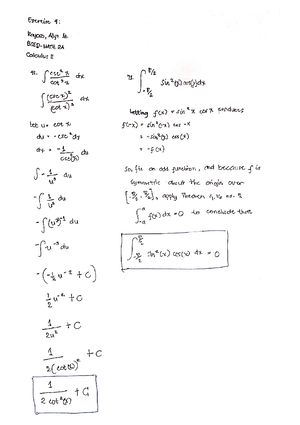 Exercise 4:
BSED-MATH 2A
Calculus II
∫ csc² x / cot³ x dx
∫ (csc x)² / (cot x)³ dx
Let u = cot x
du = -csc² dx
dx = -1 / csc²(x) du
∫ - 1/u³ du
-∫ 1/u³ du
-∫ (u³)⁻¹ du
-∫ u⁻³ du
-(-½ u⁻² + C)
½ u⁻² + C
1 / 2u² + C
1 / 2(cot(x))² + C
1 / 2 cot²(x) + C
∫ sin²(x) cos(x) dx
Letting f(x) = sin² x cos x produces
f(-x) = sin²(-x) cos -x
= -sin²(x) cos(x)
= -f(x)
So, f is an odd function, and because f is
symmetric about the origin over
[-π/2, π/2], apply Theorem
∫ f(x) dx = 0 to conclude that
∫ sin²(x) cos(x) dx = 0